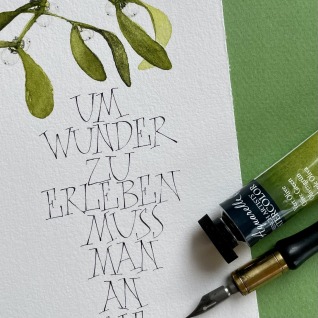 UM
WUNDER
ZU
ERLEBEN
MUSS
MAN
AN
Aquarelle